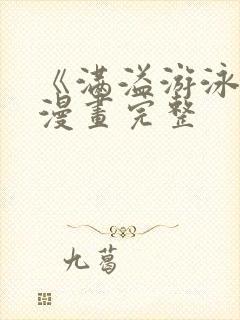 《满溢游泳
漫畫完整
九葛